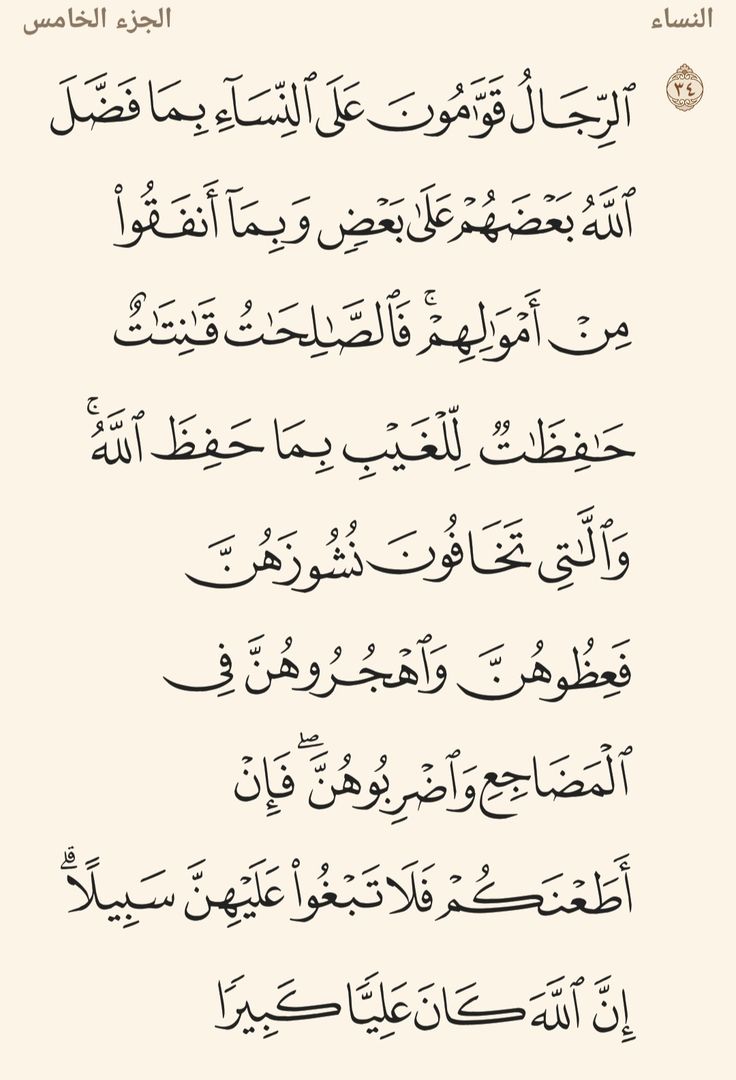 النساء الجزء الخامس
٣٤
ٱلرِّجَالُ قَوَّٰمُونَ عَلَى ٱلنِّسَآءِ بِمَا فَضَّلَ
ٱللَّهُ بَعۡضَهُمۡ عَلَىٰ بَعۡضٖ وَبِمَآ أَنفَقُواْ
مِنۡ أَمۡوَٰلِهِمۡۚ فَٱلصَّٰلِحَٰتُ قَٰنِتَٰتٌ
حَٰفِظَٰتٞ لِّلۡغَيۡبِ بِمَا حَفِظَ ٱللَّهُۚ
وَٱلَّٰتِي تَخَافُونَ نُشُوزَهُنَّ
فَعِظُوهُنَّ وَٱهۡجُرُوهُنَّ فِي
ٱلۡمَضَاجِعِ وَٱضۡرِبُوهُنَّۖ فَإِنۡ
أَطَعۡنَكُمۡ فَلَا تَبۡغُواْ عَلَيۡهِنَّ سَبِيلًاۗ
إِنَّ ٱللَّهَ كَانَ عَلِيّٗا كَبِيرٗا